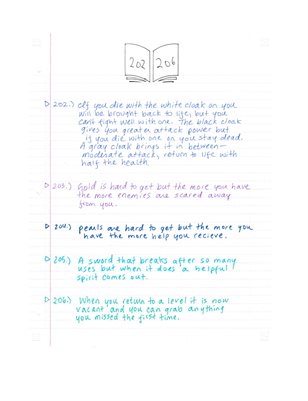 202 206
202.) If you die with the white cloak on you
will be brought back to life, but you
can't fight well with one. The black cloak
gives you greater attack power but
if you die with one on you stay dead.
A gray cloak brings it in between—
moderate attack, return to life with
half the health.
203.) Gold is hard to get but the more you have
the more enemies are scared away
from you.
204.) pearls are hard to get but the more you
have the more help you recieve.
205.) A sword that breaks after so many
uses but when it does a helpful
spirit comes out.
206.) When you return to a level it is now
vacant and you can grab anything
you missed the first time.